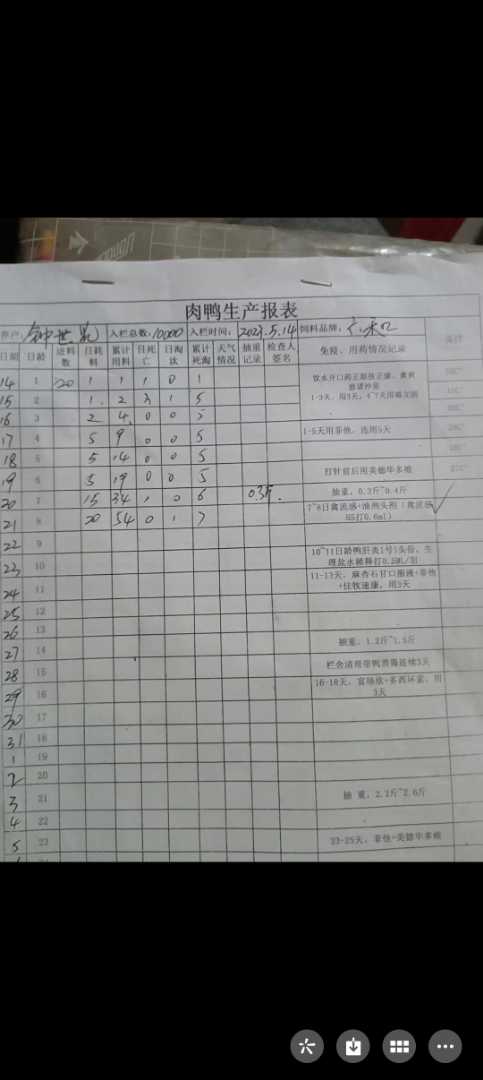 肉鸭生产报表
养户: 钟世 入栏总数: 10000 入栏时间: 2023.5.14 饲料品牌:
日期 日龄 进料数 日耗料 累计用料 日死亡 日淘汰 累计死淘 天气情况 抽重记录 检查人签名 免疫、用药情况记录 备注
14 1 120 1 1 1 0 1
15 2 1 2 3 1 5
1-3天, 用3天, 4-7天用
16 3 2 4 0 0 5
17 4 5 9 0 0 5 1-5天用菲他, 连用5天
18 5 5 14 0 0 5
19 6 5 19 0 0 5 打针前后用美德华多维
20 7 15 34 1 0 6 0.35斤. 抽重, 0.3斤~0.4斤
21 8 20 54 0 1 7 7~8日禽流感+油剂头孢（禽流感H5打0.6ml）
22 9
23 10 10~11日龄鸭肝炎1号1头份, 生理盐水稀释打0.5ML/羽
24 11 11-13天, 麻杏石甘口服液+菲他+住牧速康, 用3天
25 12
26 13
27 14 抽重, 1.2斤~1.5斤
28 15 栏舍清毒带鸭喷雾连续3天
29 16 16-18天, 富肠欣+多西环素, 用3天
30 17
31 18
1 19
2 20
3 21 抽 重, 2.2斤~2.6斤
4 22
5 23 23-25天, 菲他+美德华多维